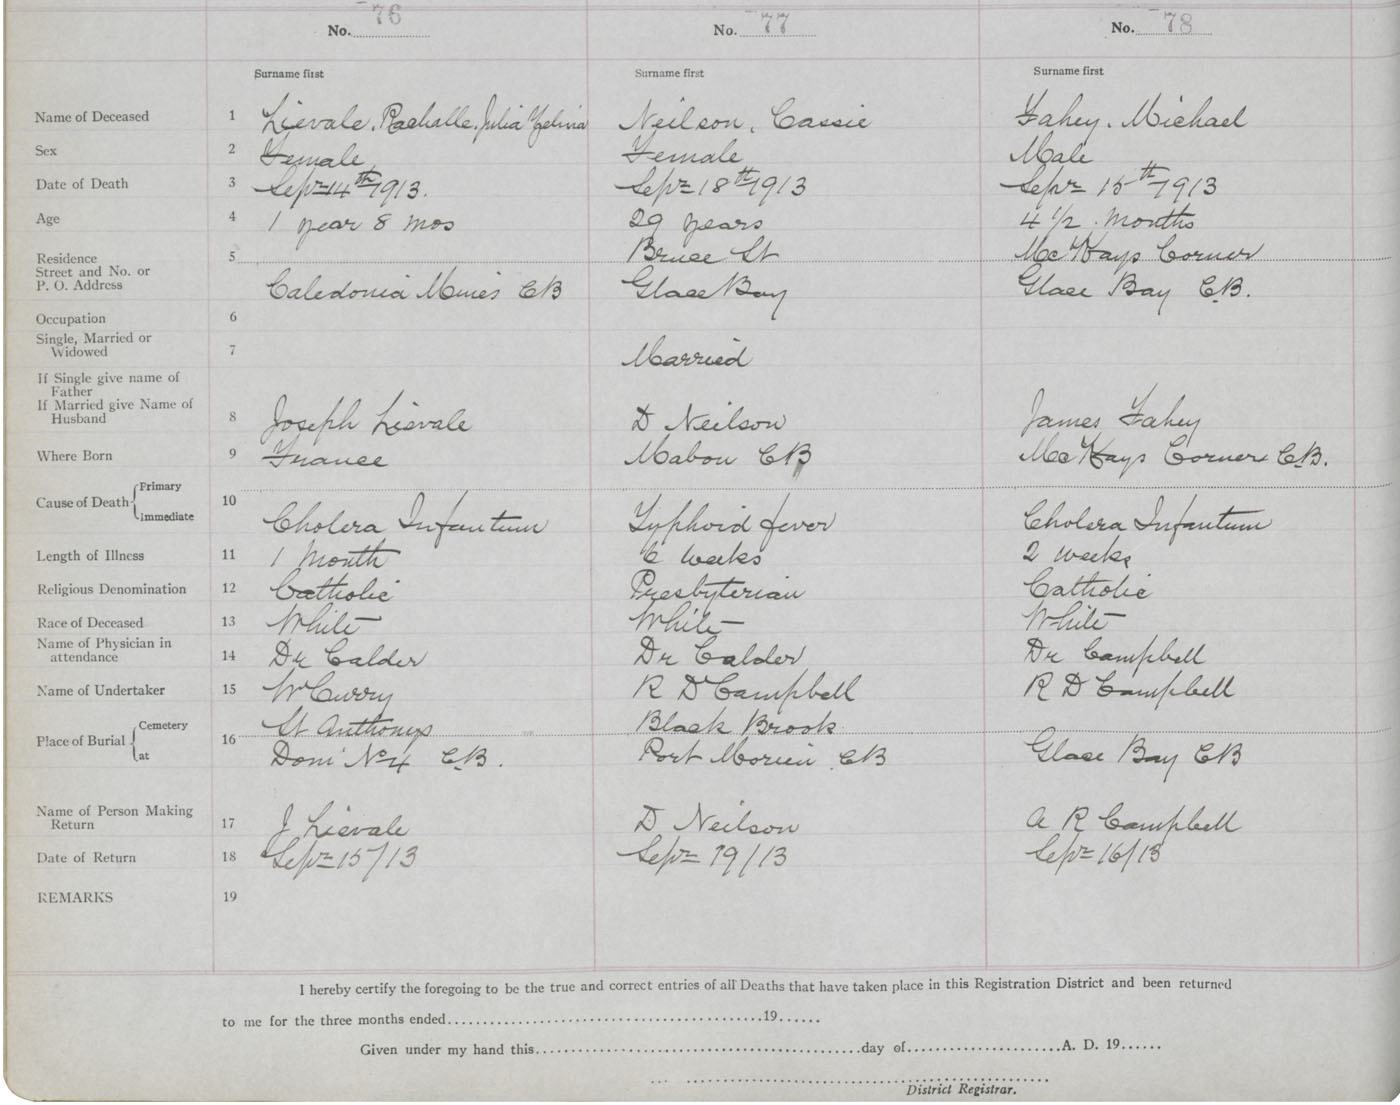 No. 76 No. 77 No. 78
Surname first Surname first Surname first
Name of Deceased 1 Lievale, Rachalle, Julia Zelina Neilson, Cassie Fahey, Michael
Sex 2 Female Female Male
Date of Death 3 Sept 14th 1913. Sept 18th 1913 Sept 15th 1913
Age 4 1 year 8 mos 29 years 4 1/2 Months
Residence 5 Bruce St McKays Corner
Street and No. or
P. O. Address Caledonia Mines CB Glace Bay Glace Bay C.B.
Occupation 6
Single, Married or
Widowed 7 Married
If Single give name of
Father
If Married give Name of
Husband 8 Joseph Lievale D Neilson James Fahey
Where Born 9 France Mabou CB McKays Corner C.B.
Cause of Death { Primary 10
Immediate Cholera Infantum Typhoid fever Cholera Infantum
Length of Illness 11 1 Month 6 weeks 2 weeks
Religious Denomination 12 Catholic Presbyterian Catholic
Race of Deceased 13 White White White
Name of Physician in
attendance 14 Dr Calder Dr Calder Dr Campbell
Name of Undertaker 15 W Curry R D Campbell R D Campbell
Place of Burial { Cemetery 16 St Anthonys Black Brook
at Dom No 4 C.B. Port Morien CB Glace Bay CB
Name of Person Making
Return 17 J Lievale D Neilson A R Campbell
Date of Return 18 Sept 15/13 Sept 19/13 Sept 16/13
REMARKS 19
I hereby certify the foregoing to be the true and correct entries of all Deaths that have taken place in this Registration District and been returned
to me for the three months ended 19
Given under my hand this day of A. D. 19
District Registrar.